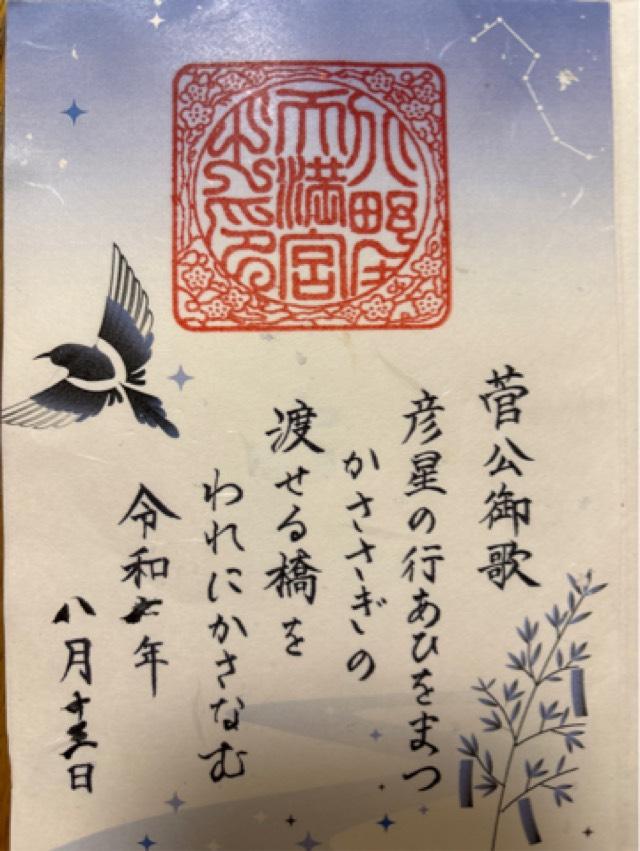 天満宮
菅公御歌
彦星の行あひをまつ
かささぎの
渡せる橋を
われにかさなむ
令和七年
八月十三日